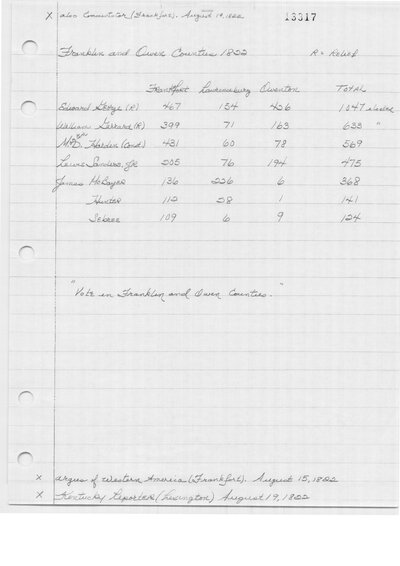 x also Commentator (Frankfort). August 19, 1822
13317
Franklin and Owen Counties 1822 R = Relief
Frankfort Lawrenceburg Owenton TOTAL
George (R) 467 154 426 1047 elected
William Gerrard (R) 399 71 163 633 "
Hardin 431 60 78 569
Lewis Sanders, Jr 205 76 194 475
James McBrayer 136 226 6 368
Hunter 112 28 1 141
Sebree 109 6 9 124
"Vote in Franklin and Owen Counties."
x Argus of Western America (Frankfort). August 15, 1822
x Kentucky Reporter (Lexington) August 19, 1822